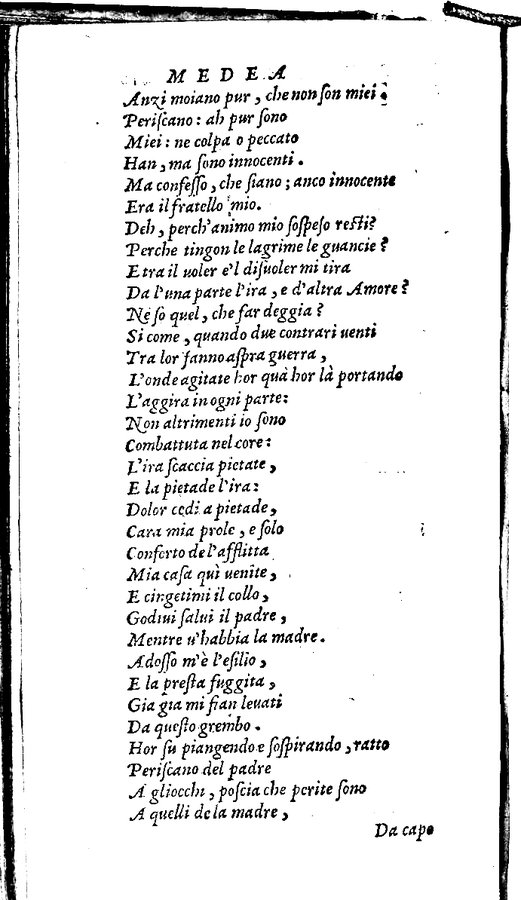 MEDEA
Anzi moiano pur, che non ſon miei.
Periſcano: ah pur ſono
Miei: ne colpa o peccato
Han, ma ſono innocenti.
Ma confeſſo, che ſiano; anco innocente
Era il fratello mio.
Deh, perch'animo mio ſoſpeſo reſti?
Perche tingon le lagrime le guancie?
E tra il uoler e'l diſuoler mi tira
Da l'una parte l'ira, e d'altra Amore?
Ne ſo quel, che far deggia?
Si come, quando due contrari uenti
Tra lor fanno aſpra guerra,
L'onde agitate hor quà hor là portando
L'aggira in ogni parte:
Non altrimenti io ſono
Combattuta nel core:
L'ira ſcaccia pietate,
E la pietade l'ira:
Dolor cedi a pietade,
Cara mia prole, e ſolo
Conforto de l'afflitta
Mia caſa quì uenite,
E cingetimi il collo,
Godiui ſalui il padre,
Mentre u'habbia la madre.
Adoſſo m'è l'eſilio,
E la preſta fuggita,
Gia gia mi fian leuati
Da queſto grembo.
Hor ſu piangendo e ſoſpirando, ratto
Periſcano del padre
A gliocchi, poſcia che perite ſono
A quelli de la madre,
Da capo